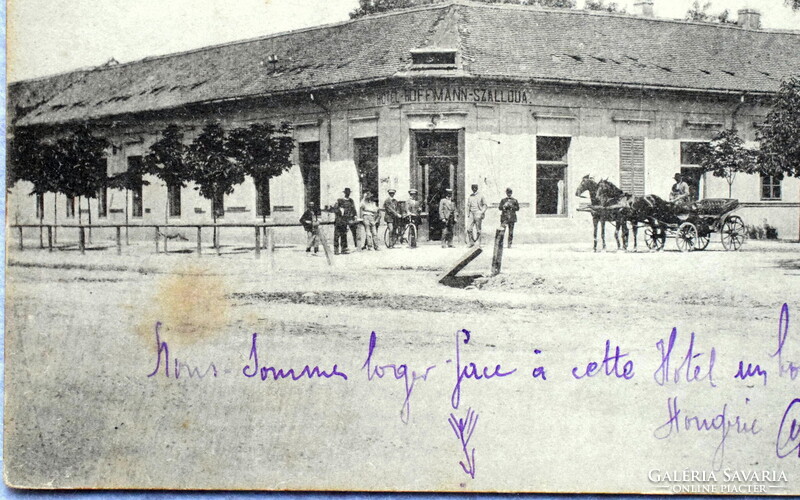 HOTEL HOFFMANN-SZÁLLODA.
Nous Somme loger face à cette Hotel un
Hongrie
GALERIA SAVARIA
ONLINE PIACTÉR